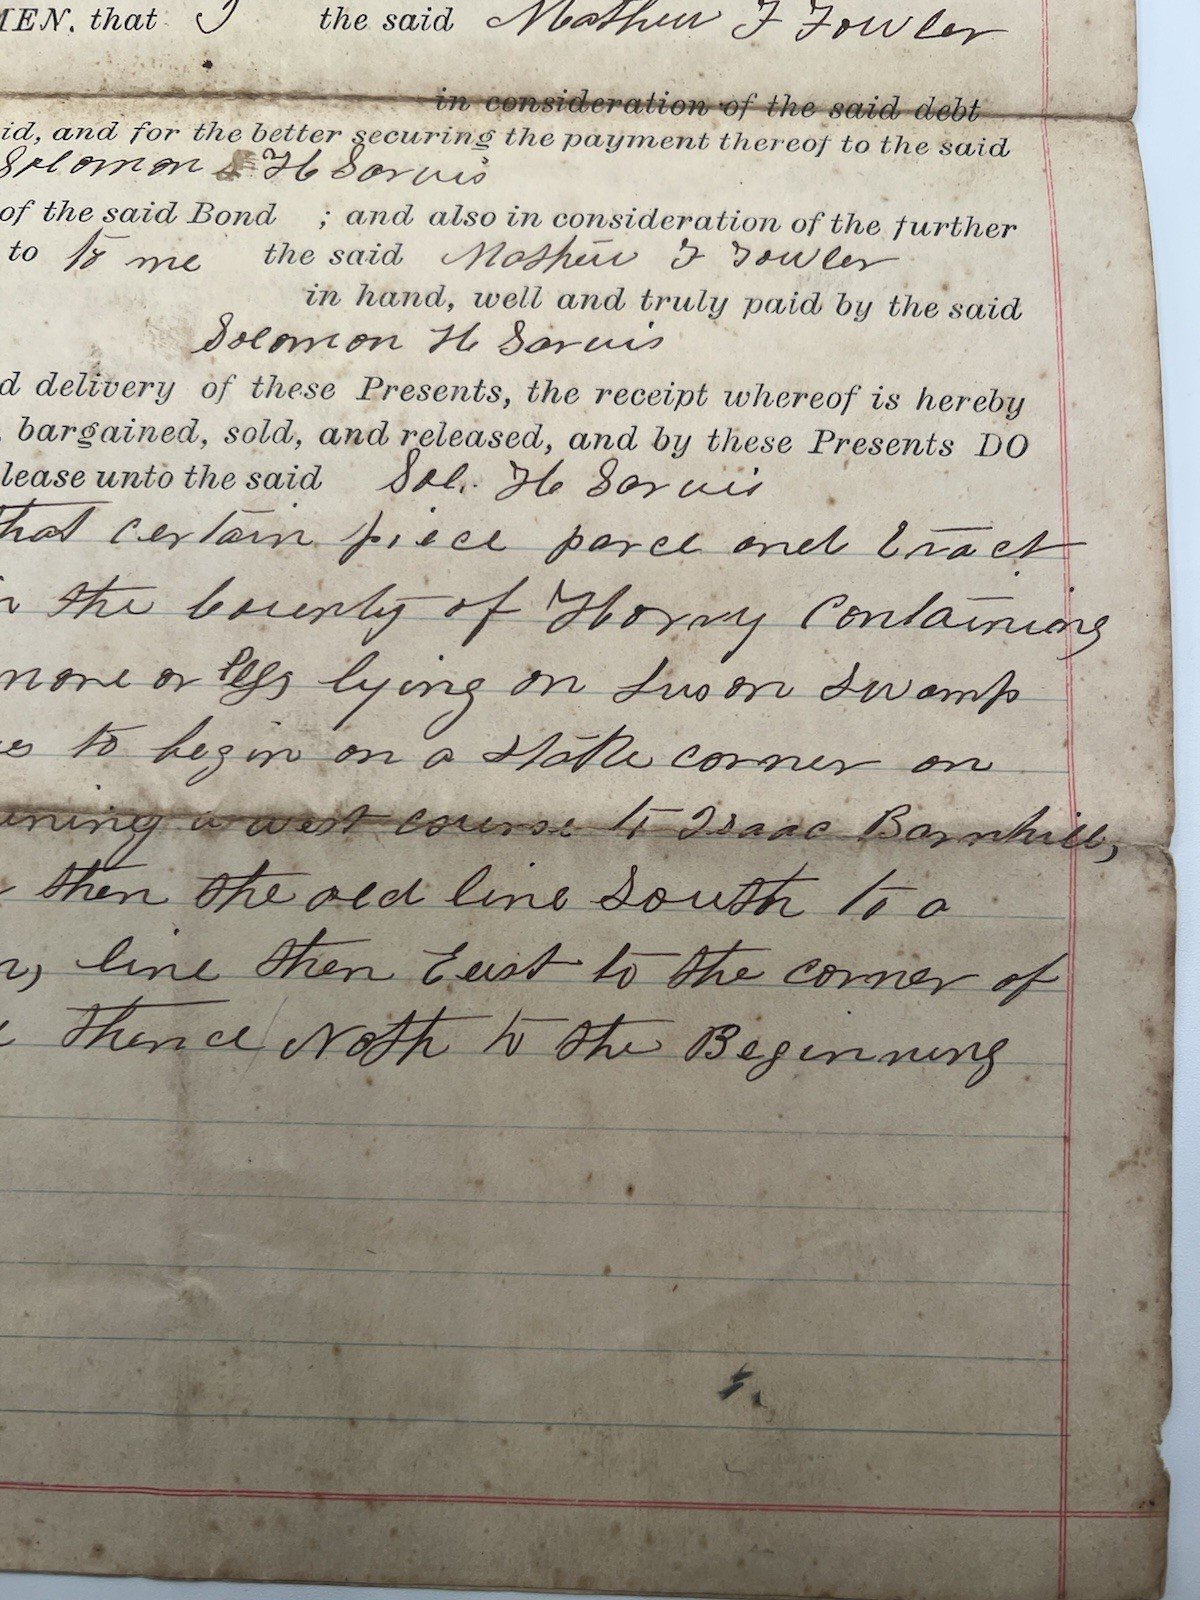 MEN, that I the said Mathew F Fowler
in consideration of the said debt
id, and for the better securing the payment thereof to the said
Solomon H Sarvis
of the said Bond ; and also in consideration of the further
to to me the said Mathew F Fowler
in hand, well and truly paid by the said
Solomon H Sarvis
d delivery of these Presents, the receipt whereof is hereby
, bargained, sold, and released, and by these Presents DO
lease unto the said Sol. H Sarvis
that certain piece parce and tract
the County of Horry Containing
more or less lying on Swamp
to begin on a stake corner on
uning a west course to Isaac Barnhill,
then the old line South to a
n, line then East to the corner of
thence Noth to the Beginning